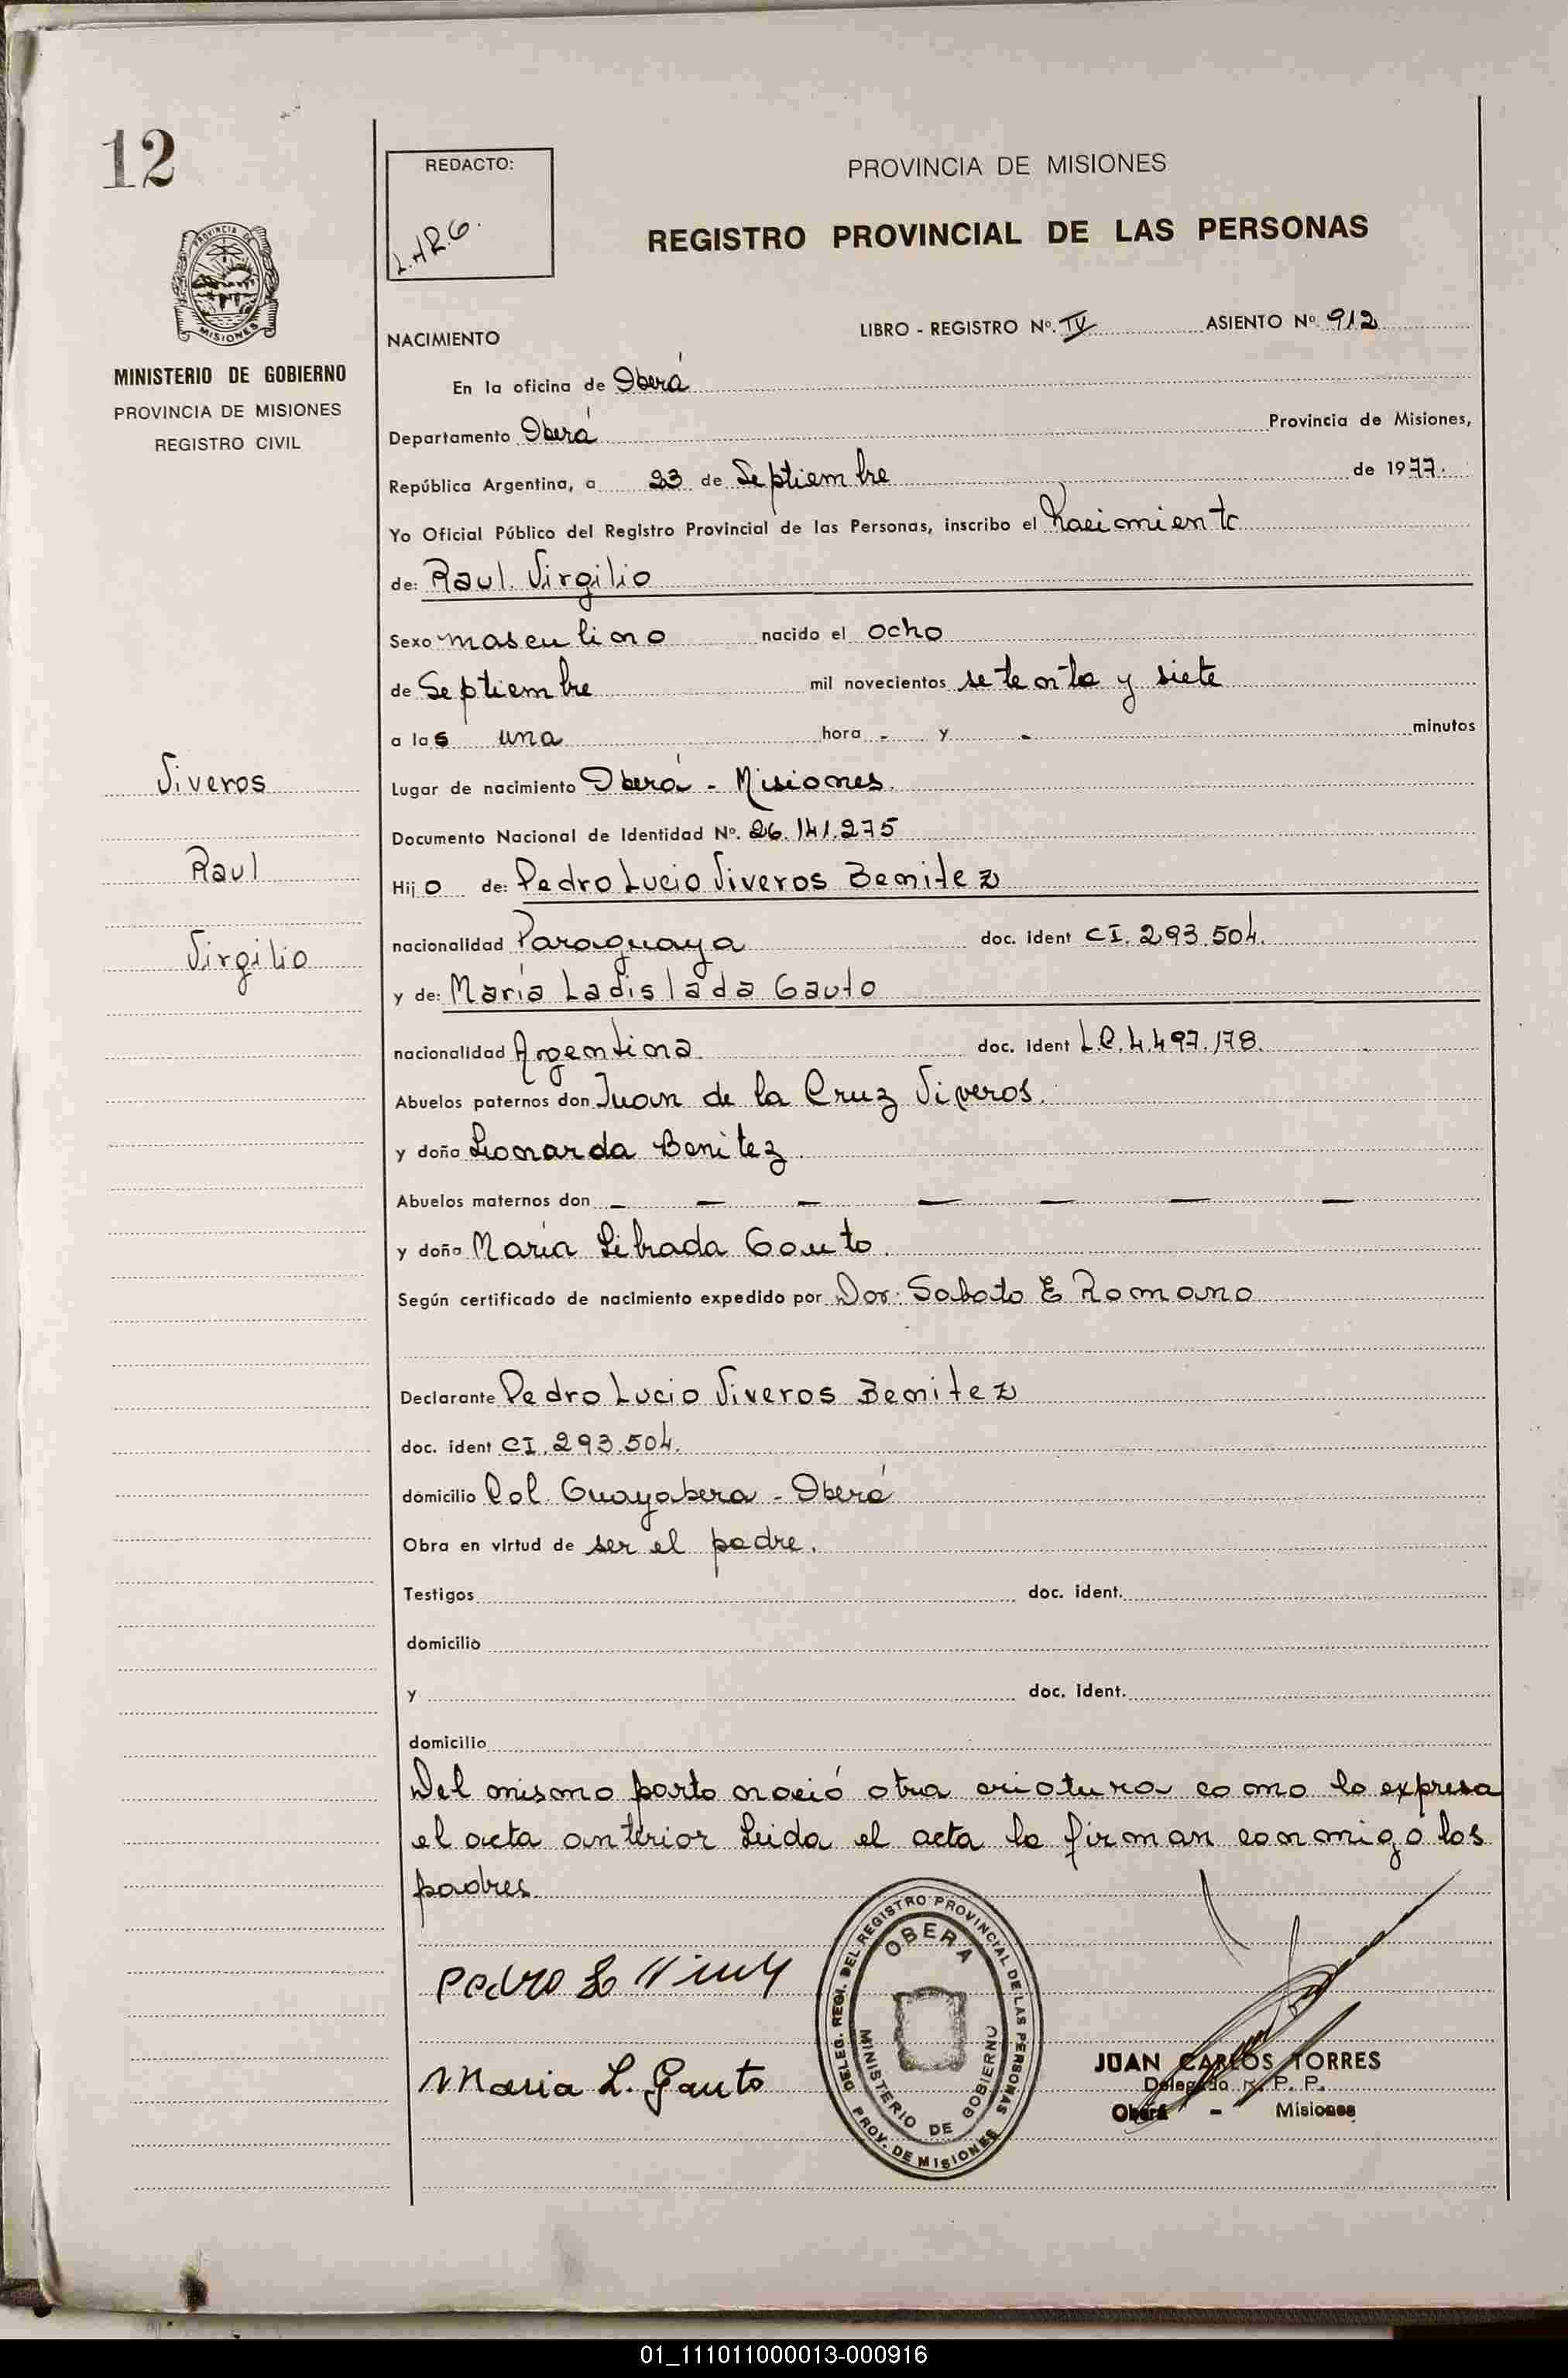 12
REDACTO:
L.H.R.G.
PROVINCIA DE MISIONES
REGISTRO PROVINCIAL DE LAS PERSONAS
PROVINCIA DE
MISIONES
MINISTERIO DE GOBIERNO
PROVINCIA DE MISIONES
REGISTRO CIVIL
NACIMIENTO
LIBRO - REGISTRO Nº. IV ASIENTO Nº. 912
En la oficina de Oberá
Departamento Oberá Provincia de Misiones,
República Argentina, a 23 de Septiembre de 1977.
Yo Oficial Público del Registro Provincial de las Personas, inscribo el Nacimiento
de: Raul Virgilio
Sexo masculino nacido el ocho
de Septiembre mil novecientos setenta y siete
a las una hora - y - minutos
Lugar de nacimiento Oberá - Misiones.
Documento Nacional de Identidad Nº. 26.141.275
Hijo de: Pedro Lucio Viveros Benitez
nacionalidad Paraguaya doc. ident CI. 293.504.
y de: María Ladislada Gauto
nacionalidad Argentina doc. ident L.C. 4.497.178.
Abuelos paternos don Juan de la Cruz Viveros.
y doña Leonarda Benitez.
Abuelos maternos don - - - - - - -
y doña María Librada Gauto.
Según certificado de nacimiento expedido por Dor. Sabato E Romano
Declarante Pedro Lucio Viveros Benitez
doc. ident CI. 293.504.
domicilio Col. Guayabera - Oberá
Obra en virtud de ser el padre.
Testigos doc. ident.
domicilio
y doc. ident.
domicilio
Del mismo parto nació otra criatura como lo expresa
el acta anterior Leida el acta la firman conmigo los
padres.
Viveros
Raul
Virgilio
Pedro L
Maria L. Gauto
DELEG. REGI. DEL REGISTRO PROVINCIAL DE LAS PERSONAS
PROV. DE MISIONES
OBERA
MINISTERIO DE GOBIERNO
JUAN CARLOS TORRES
Delegado R. P. P.
Oberá - Misiones
01_111011000013-000916